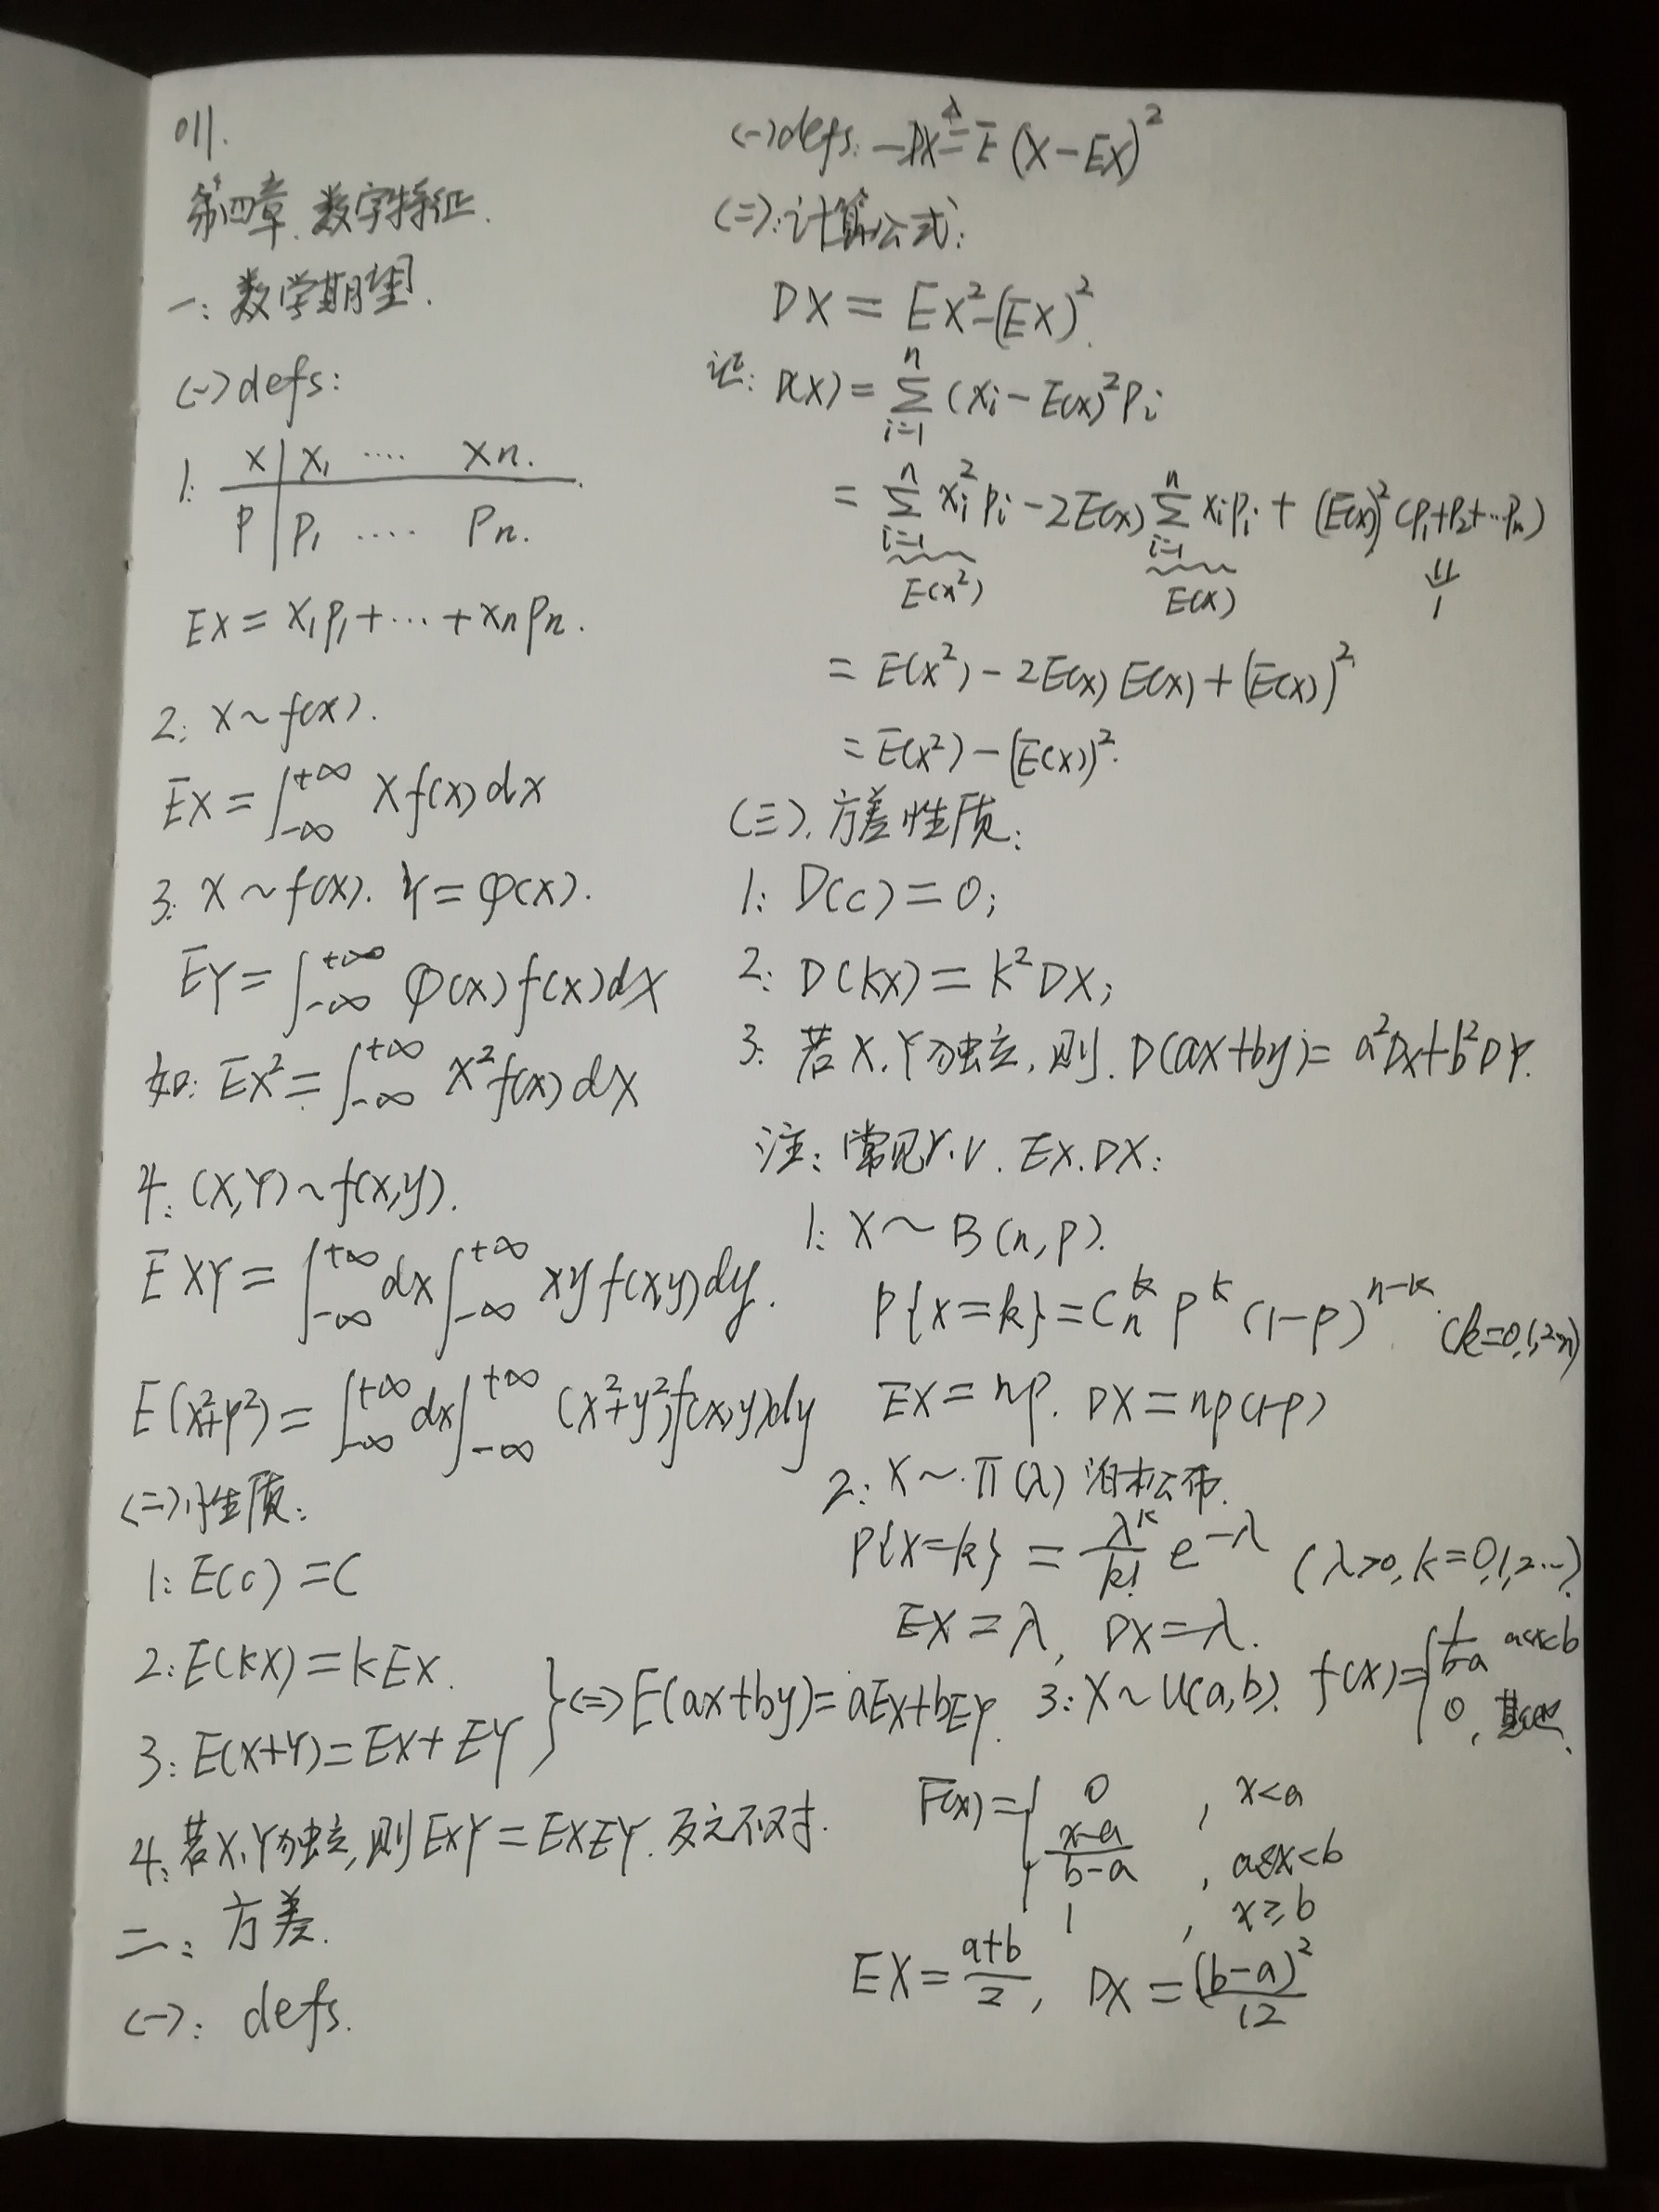 011.
第四章. 数字特征.
一: 数学期望.
(一) defs:
1: X | X₁ ···· Xn.
P | P₁ ···· Pn.
EX = X₁P₁+···+XnPn.
2: X~f(x).
EX = ∫_{-∞}^{+∞} x f(x) dx
3: X~f(x). Y=φ(x).
EY = ∫_{-∞}^{+∞} φ(x) f(x) dx
如: EX² = ∫_{-∞}^{+∞} x² f(x) dx
4: (X,Y)~f(x,y).
EXY = ∫_{-∞}^{+∞} dx ∫_{-∞}^{+∞} xy f(x,y) dy.
E(X²+Y²) = ∫_{-∞}^{+∞} dx ∫_{-∞}^{+∞} (x²+y²) f(x,y) dy
(二) 性质:
1: E(c) = C
2: E(kX) = kEX.
3: E(X+Y) = EX+EY } ⇔ E(ax+by) = aEX+bEY.
4: 若X,Y独立, 则EXY = EXEY. 反之不对.
二: 方差.
(一): defs.
(一) defs: DX ≜ E(X-EX)²
(二): 计算公式:
DX = EX²-(EX)².
证: D(X) = Σ_{i=1}^{n} (xi-E(x))² Pi
= Σ_{i=1}^{n} xi² pi - 2E(x) Σ_{i=1}^{n} xi pi + (E(x))² (P₁+P₂+···Pn)
E(x²) E(x) ⇓ 1
= E(x²) - 2E(x) E(x) + (E(x))²
= E(x²) - (E(x))².
(三). 方差性质:
1: D(c) = 0;
2: D(kx) = k²DX;
3: 若X,Y独立, 则. D(ax+by) = a²Dx+b²DY.
注: 常见r.v. EX.DX:
1: X~B(n,p).
P{x=k} = C_n^k p^k (1-p)^{n-k}. (k=0,1,2···n)
EX = np. DX = np(1-p)
2: X~π(λ) 泊松分布.
P{X=k} = λ^k/k! e^{-λ} (λ>0, k=0,1,2···)
EX = λ, DX = λ.
3: X~U(a,b). f(x) = { 1/(b-a) a<x<b
0,
F(x) = { 0 , x<a
(x-a)/(b-a) , a≤x<b
1 , x≥b
EX = (a+b)/2, DX = (b-a)²/12